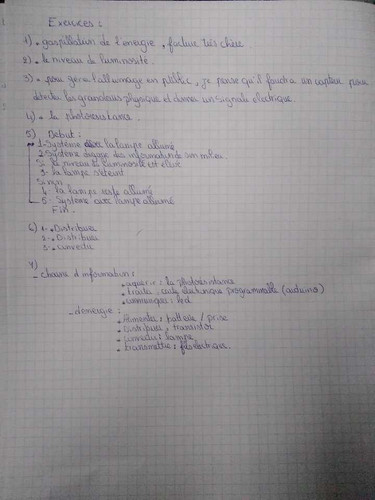 Exercices :
1) • gaspillation de l'énergie, facture très chère.
2) • le niveau de luminosité.
3) • pour gérer l'allumage en public, je pense qu'il faudra un capteur pour
détecter les grandeurs physique et donner un signale électrique.
4) • la photoresistance
5) Début :
1 - Système avec la lampe allumé
2 Système des informations de son milieu
Si le niveau de luminosité est élevé
3 - la lampe s'éteint
Sinon
4 - la lampe reste allumé
5 - Système avec lampe allumé
Fin.
6) 1 - Distribuer
2 - Distribuer
3 - Convertir
7)
- chaine d'information :
• aquerir : la photoresistance
• traiter : carte electronique programmable (arduino)
• communiquer : led
- d'energie :
• Alimenter : batterie / prise
• Distribuer : transistor
• convertir : lampe
• transmettre : files électrique.